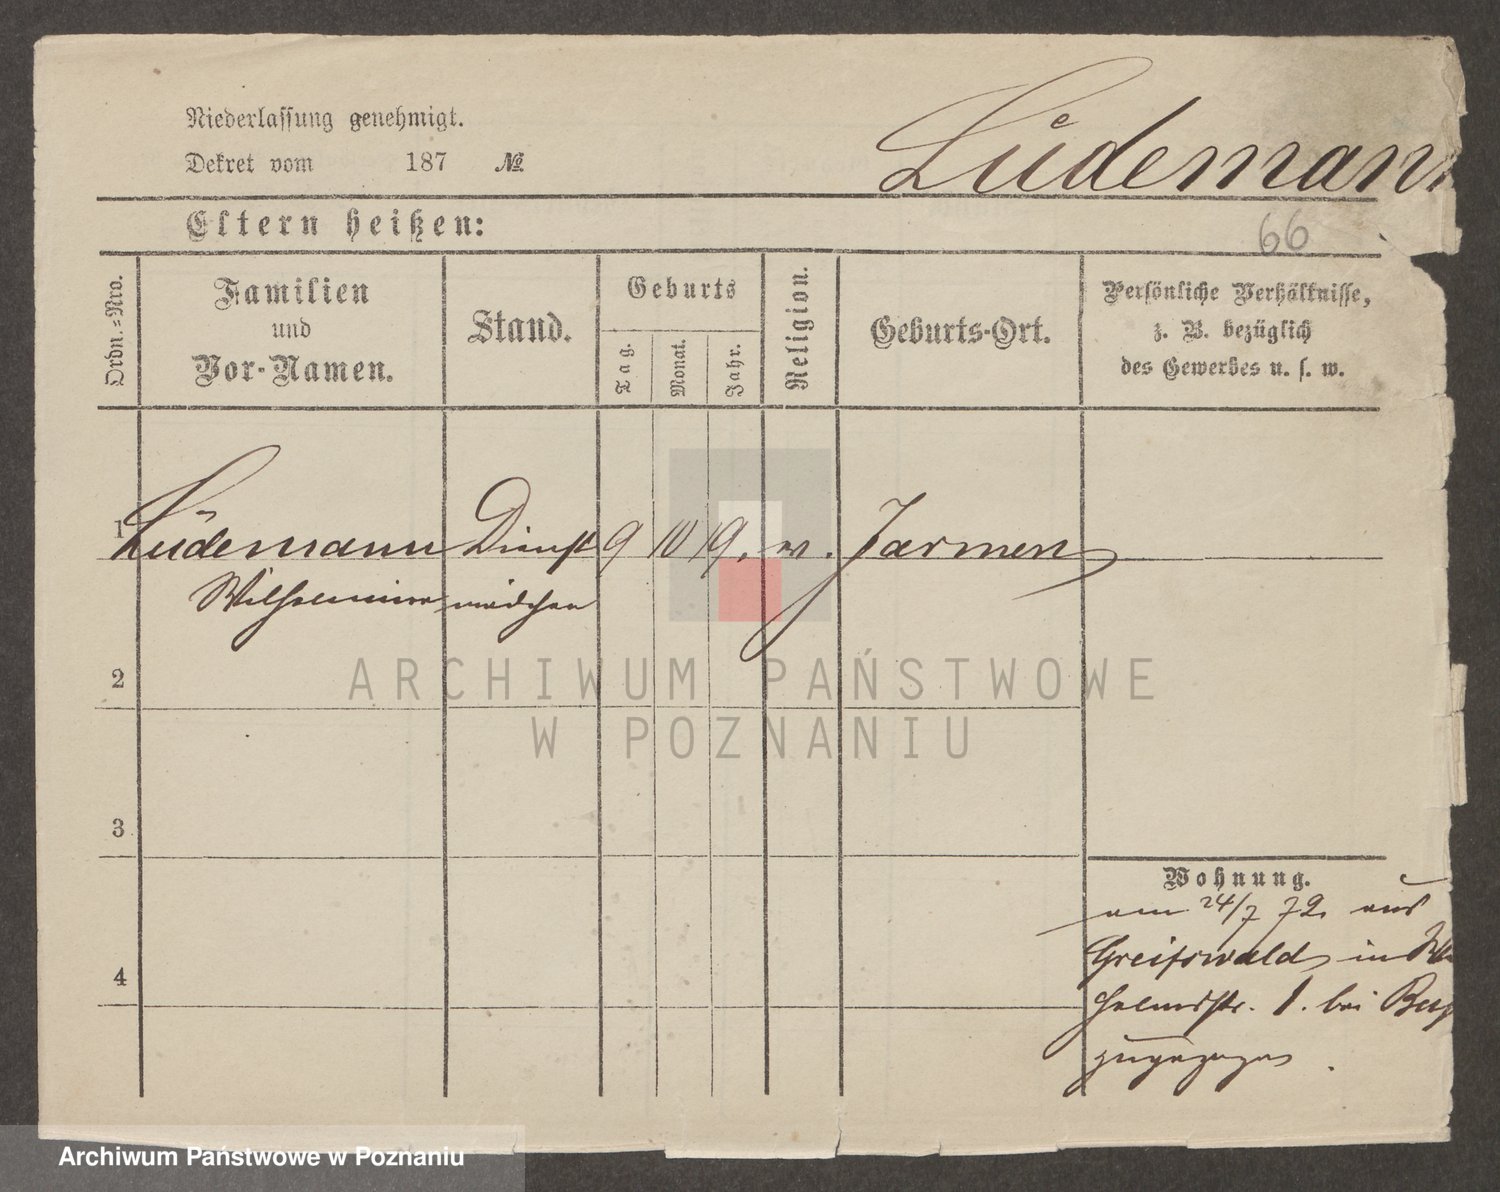 Niederlassung genehmigt.
Dekret vom 187 №
Lüdemann
Eltern heißen:
66
Ordn.-Nro.
Familien
und
Vor-Namen.
Stand.
Geburts
Tag.
Monat.
Jahr.
Religion.
Geburts-Ort.
Persönliche Verhältnisse,
z. B. bezüglich
des Gewerbes u. s. w.
1 Lüdemann Dienst 9 10 19. w. Jarmen
Wilhelmine mädchen
2
3
4
Wohnung.
am 24/7 72. aus
Greifswald in Wil
helmsstr. 1. bei
zugezogen.
ARCHIWUM PAŃSTWOWE
W POZNANIU
Archiwum Państwowe w Poznaniu